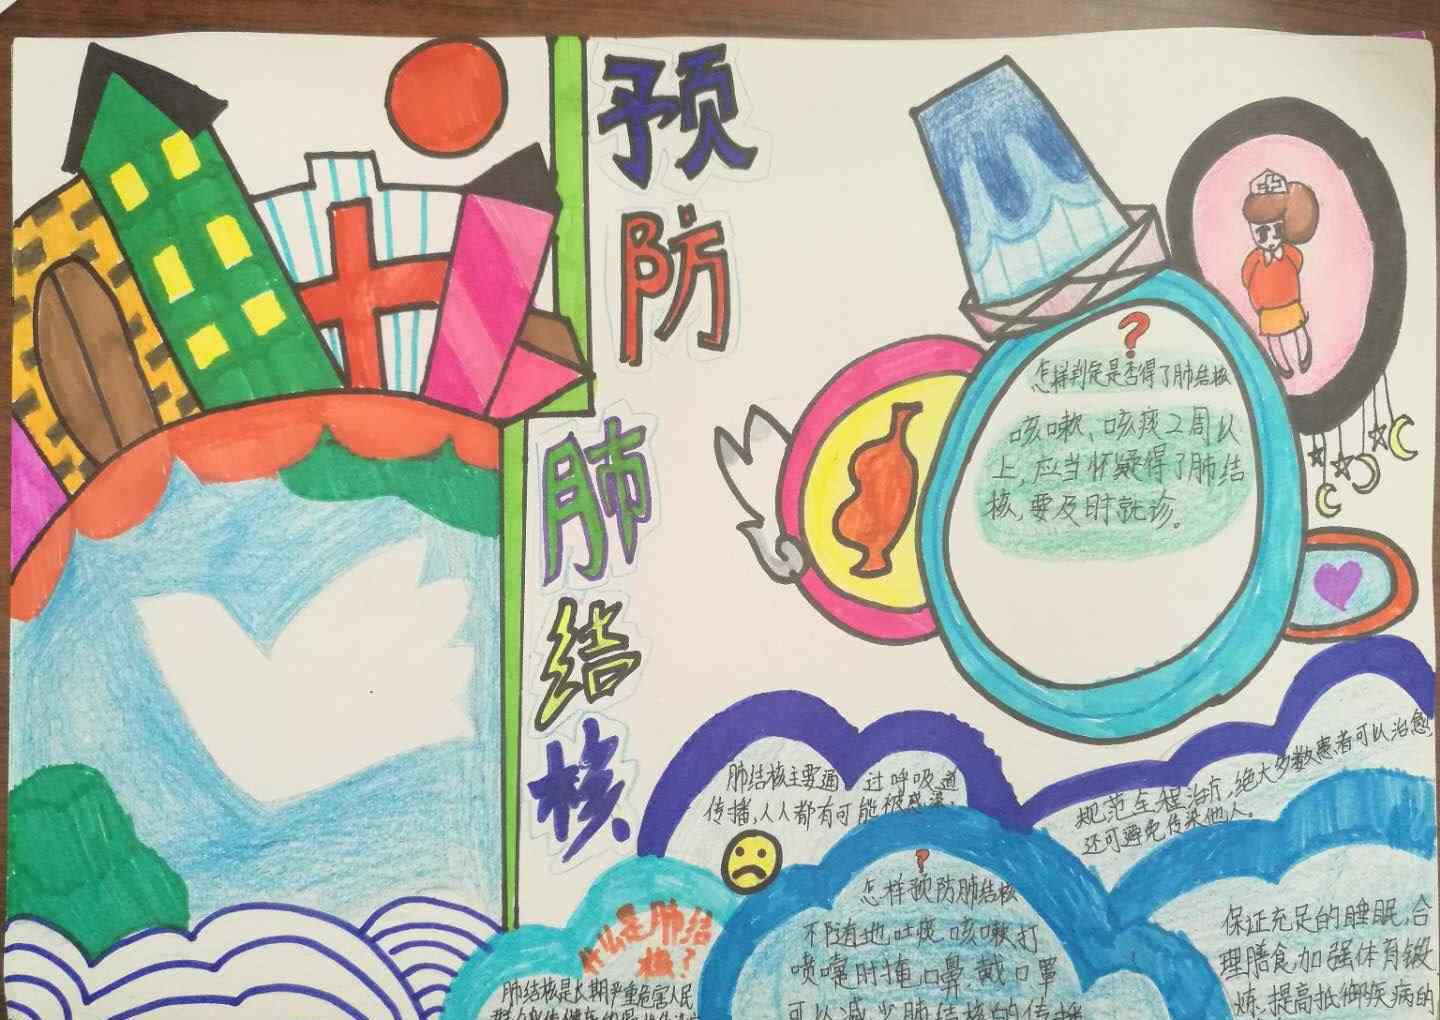 预
防
肺
结
核
?
怎样判定是否得了肺结核
咳嗽、咳痰2周以
上,应当怀疑得了肺结
核,要及时就诊。
肺结核主要通 过呼吸道
传播,人人都有可能被感染.
规范全程治疗,绝大多数患者可以治愈
还可避免传染他人。
?
怎样预防肺结核
不随地吐痰 咳嗽打
喷嚏时掩口鼻 戴口罩
可以减少肺结核的传播
什么是肺结
核?
肺结核是长期严重危害人民
保证充足的睡眠,合
理膳食加强体育锻
炼.提高抵御疾病的